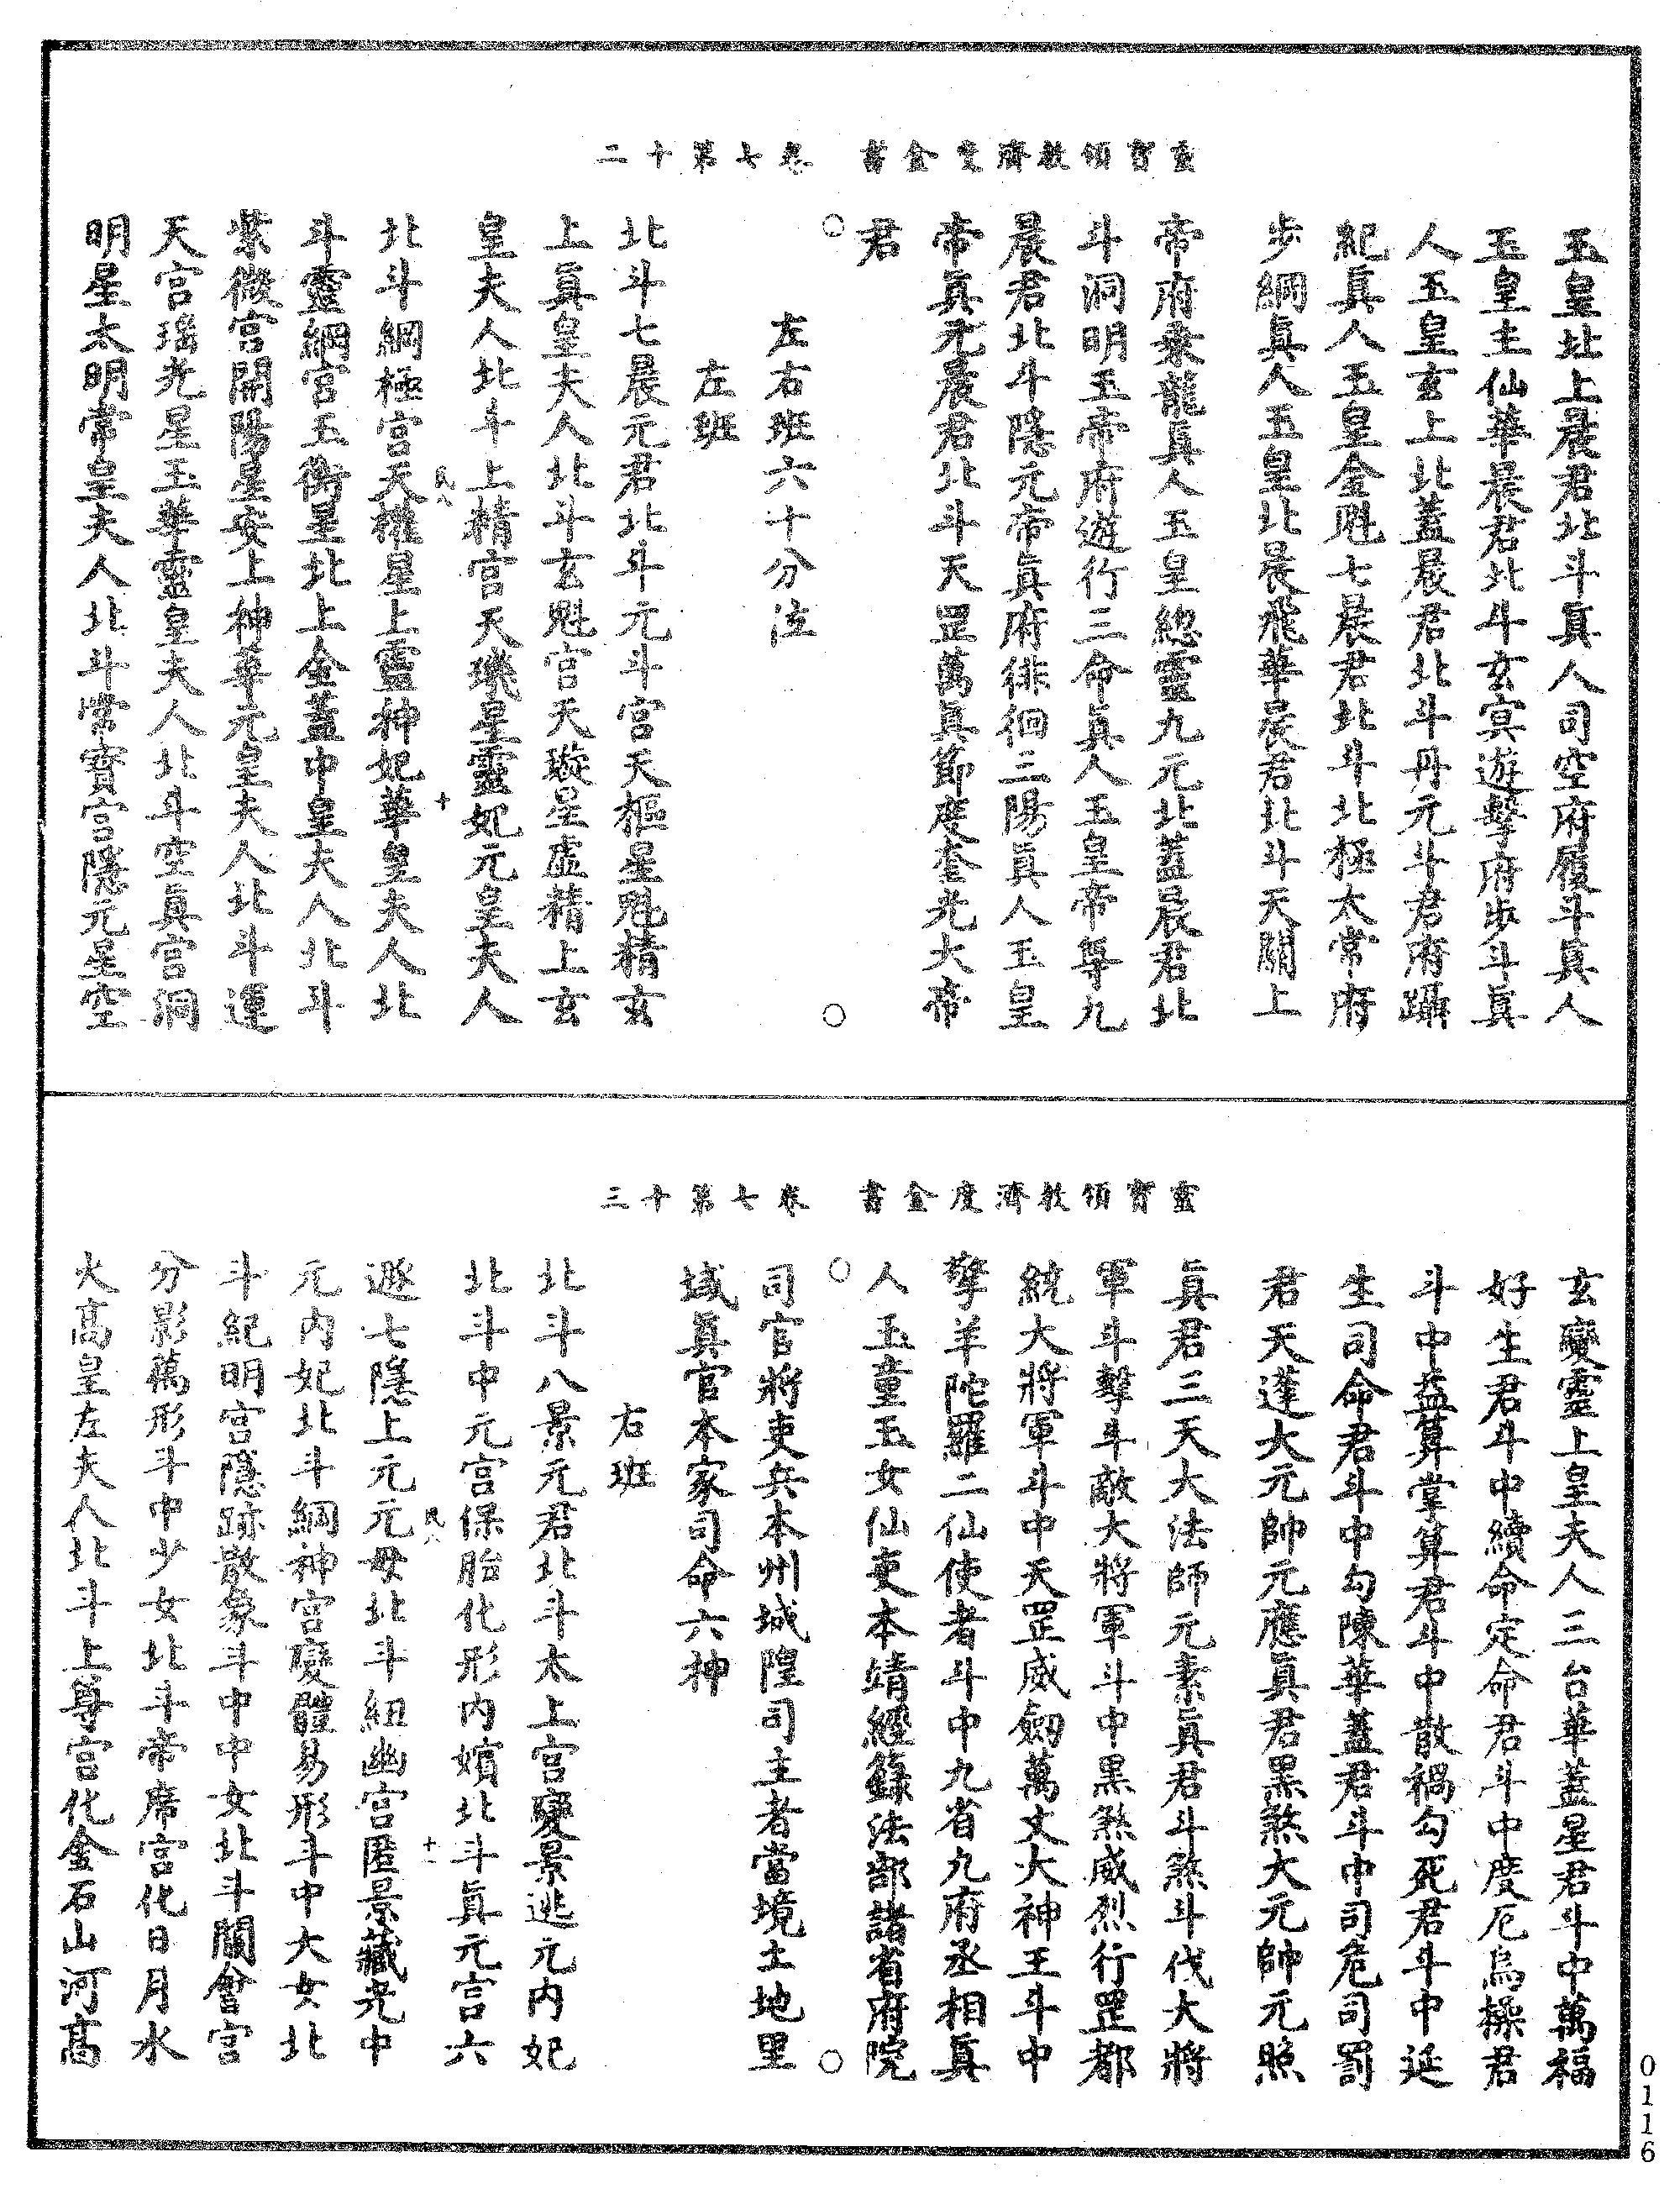 靈寶領教濟度金書　卷七第十二
玉皇北上晨君北斗真人司空府履斗真人
玉皇主仙華晨君北斗玄冥遊擊府步斗真
人玉皇玄上北蓋晨君北斗丹元斗君府躡
紀真人玉皇金魁七晨君北斗北極太常府
步綱真人玉皇北晨飛華晨君北斗天關上
帝府乘龍真人玉皇總靈九元北蓋晨君北
斗洞明玉帝府遊行三命真人玉皇帝尊九
晨君北斗隱元帝真府徘徊三陽真人玉皇
帝真元晨君北斗天罡萬真節度奎光大帝
君
左右班六十分位
左班
北斗七晨元君北斗元斗宮天樞星魁精玄
上真皇夫人北斗玄魁宮天璇星虛精上玄
皇夫人北斗上精宮天璣星靈妃元皇夫人
民八　十
北斗綱極宮天權星上靈神妃華皇夫人北
斗靈綱宮玉衡星北上金蓋中皇夫人北斗
紫微宮開陽星安上神華元皇夫人北斗運
天宮瑤光星玉華靈皇夫人北斗空真宮洞
明星太明常皇夫人北斗常寶宮隱元星空
靈寶領教濟度金書　卷七第十三
玄變靈上皇夫人三台華蓋星君斗中萬福
好生君斗中續命定命君斗中度厄烏標君
斗中益算掌算君斗中散禍勾死君斗中延
生司命君斗中勾陳華蓋君斗中司危司罰
君天蓬大元帥元應真君黑煞大元帥元照
真君三天大法師元素真君斗煞斗伐大將
軍斗擊斗敵大將軍斗中黑煞威烈行罡都
統大將軍斗中天罡威劍萬丈大神王斗中
擎羊陀羅二仙使者斗中九省九府丞相真
人玉童玉女仙吏本靖經籙法部諸省府院
司官將吏兵本州城隍司主者當境土地里
域真官本家司命六神
右班
北斗八景元君北斗太上宮變景逃元內妃
北斗中元宮保胎化形內嬪北斗真元宮六
民八　十一
遯七隱上元元母北斗紐幽宮匿景藏光中
元內妃北斗綱神宮變體易形斗中大女北
斗紀明宮隱跡散象斗中中女北斗關會宮
分影萬形斗中少女北斗帝席宮化日月水
火高皇左夫人北斗上尊宮化金石山河高
0116